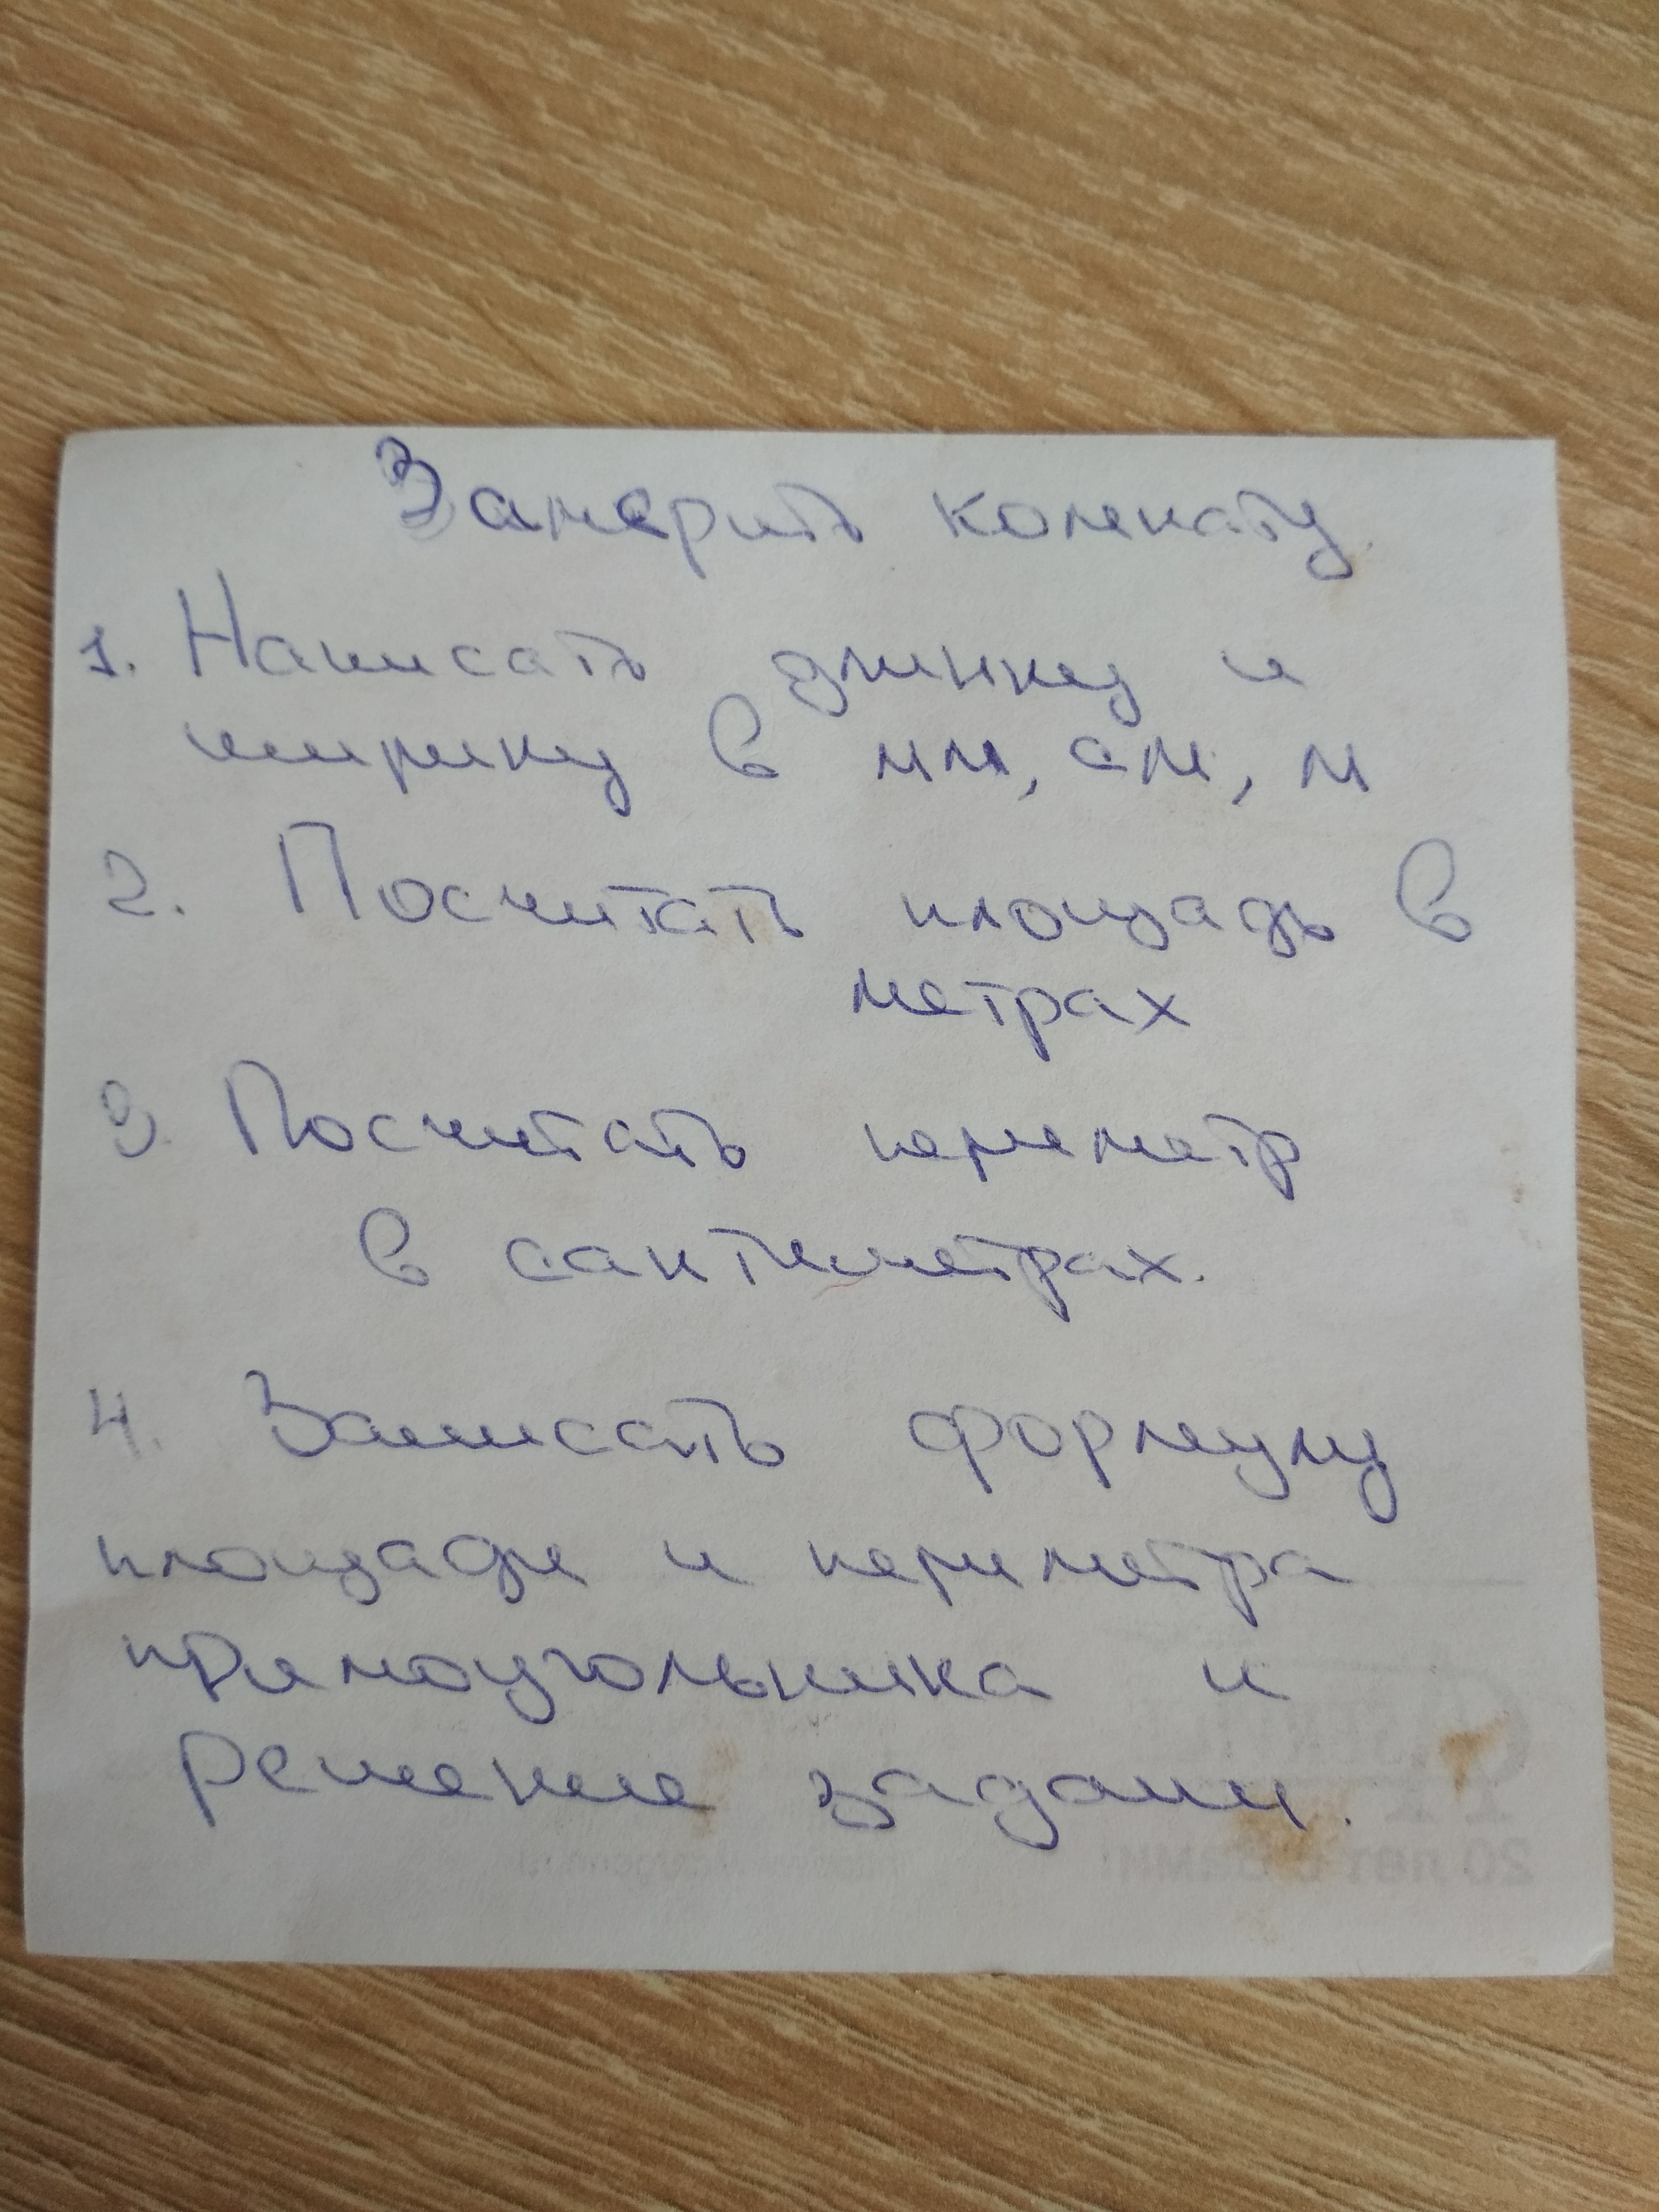 Замерить комнату.
1. Написать длинну и
ширину в мм, см, м
2. Посчитать площадь в
метрах
3. Посчитать периметр
в сантиметрах.
4. Записать формулу
площади и периметра
прямоугольника и
решение задачи.